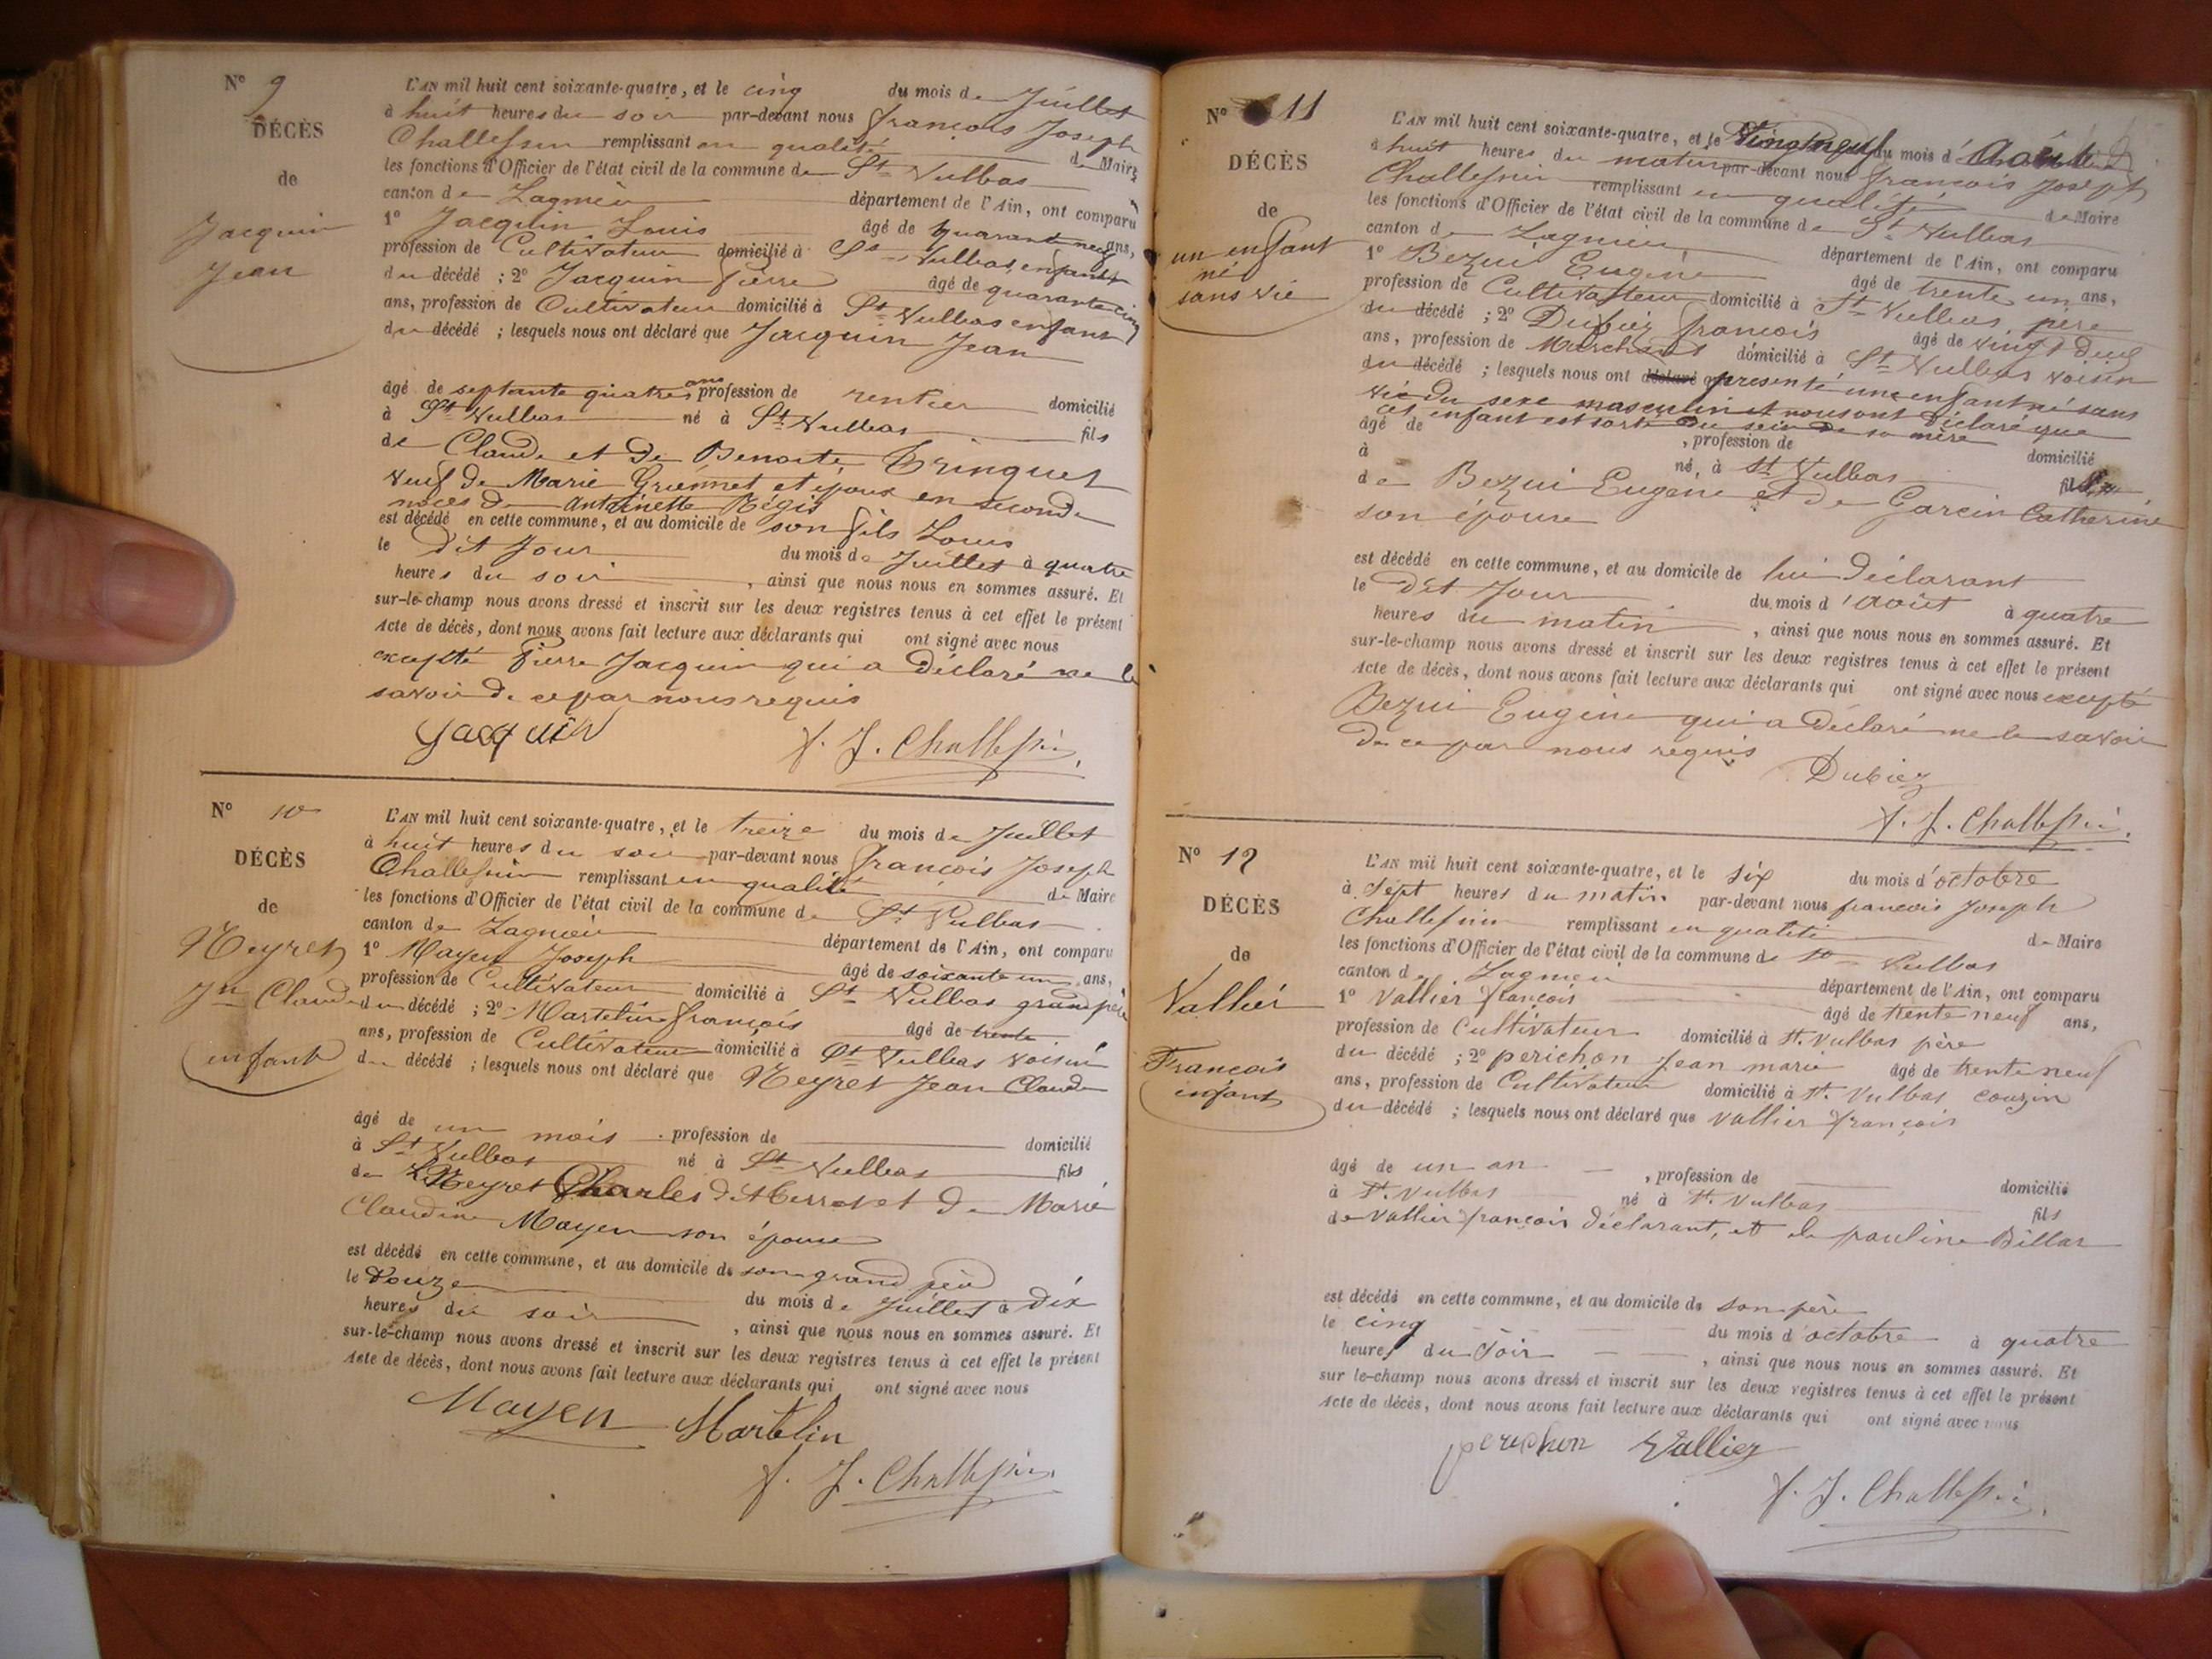 N° 9
DÉCÈS
de
Jacquin
Jean
L'AN mil huit cent soixante-quatre, et le cinq du mois de Juillet
à huit heures du soir par-devant nous francois Joseph
remplissant en qualité de Maire
les fonctions d'Officier de l'état civil de la commune de St Vulbas
canton de Lagnieu département de l'Ain, ont comparu
1° Jacquin Louis âgé de quarante neuf ans,
profession de Cultivateur domicilié à St Vulbas, enfant
du décédé ; 2° Jacquin Pierre âgé de quarante cinq
ans, profession de Cultivateur domicilié à St Vulbas enfant
du décédé ; lesquels nous ont déclaré que Jacquin Jean
âgé de septante quatre ans profession de rentier domicilié
à St Vulbas né à St Vulbas fils
de Claude et de Benoite Tringuet
veuf de Marie et époux en seconde
noces de Antoinette Régis
est décédé en cette commune, et au domicile de son fils Louis
le dit Jour du mois de Juillet à quatre
heures du soir , ainsi que nous nous en sommes assuré. Et
sur-le-champ nous avons dressé et inscrit sur les deux registres tenus à cet effet le présent
Acte de décès, dont nous avons fait lecture aux déclarants qui ont signé avec nous
excepté Pierre Jacquin qui a déclaré ne le
savoir de ce par nous requis
Jacquin
N° 10
DÉCÈS
de
Neyret
Jn Claude
enfant
L'AN mil huit cent soixante-quatre, et le treize du mois de Juillet
à huit heures du soir par-devant nous francois Joseph
remplissant en qualité de Maire
les fonctions d'Officier de l'état civil de la commune de St Vulbas
canton de Lagnieu département de l'Ain, ont comparu
1° Mayen Joseph âgé de soixante un ans,
profession de Cultivateur domicilié à St Vulbas grand père
du décédé ; 2° Martelin françois âgé de trente
ans, profession de Cultivateur domicilié à St Vulbas voisin
du décédé ; lesquels nous ont déclaré que Neyret Jean Claude
âgé de un mois . profession de domicilié
à St Vulbas né à St Vulbas fils
de Neyret Charles dit et de Marie
Claudine Mayen son épouse
est décédé en cette commune, et au domicile de son grand père
le Douze du mois de Juillet à Dix
heures du soir , ainsi que nous nous en sommes assuré. Et
sur-le-champ nous avons dressé et inscrit sur les deux registres tenus à cet effet le présent
Acte de décès, dont nous avons fait lecture aux déclarants qui ont signé avec nous
Mayen Martelin
N° 11
DÉCÈS
de
un enfant
né
sans vie
L'AN mil huit cent soixante-quatre, et le Vingt neuf du mois d'Août
à huit heures du matin par-devant nous francois Joseph
remplissant en qualité de Maire
les fonctions d'Officier de l'état civil de la commune de St Vulbas
canton de Lagnieu département de l'Ain, ont comparu
1° Bezui Eugène âgé de trente un ans,
profession de Cultivateur domicilié à St Vulbas, père
du décédé ; 2° Dubiez francois âgé de vingt deux
ans, profession de Marchand domicilié à St Vulbas voisin
du décédé ; lesquels nous ont déclaré que présenté une enfant né sans
vie du sexe masculin et nous ont déclaré que
cet enfant est sorti du sein de sa mère
âgé de , profession de domicilié
à né à St Vulbas fils
de Bezui Eugène et de Garcin Catherine
son épouse
est décédé en cette commune, et au domicile de lui déclarant
le Dit Jour du mois d'août à quatre
heures du matin , ainsi que nous nous en sommes assuré. Et
sur-le-champ nous avons dressé et inscrit sur les deux registres tenus à cet effet le présent
Acte de décès, dont nous avons fait lecture aux déclarants qui ont signé avec nous excepté
Bezui Eugène qui a déclaré ne le savoir
de ce par nous requis
Dubiez
N° 12
DÉCÈS
de
Vallier
Francois
enfant
L'AN mil huit cent soixante-quatre, et le six du mois d'octobre
à sept heures du matin par-devant nous francois Joseph
remplissant en qualité de Maire
les fonctions d'Officier de l'état civil de la commune de St Vulbas
canton de Lagnieu département de l'Ain, ont comparu
1° Vallier françois âgé de trente neuf ans,
profession de Cultivateur domicilié à St. Vulbas père
du décédé ; 2° perichon Jean marie âgé de trente neuf
ans, profession de Cultivateur domicilié à St. Vulbas couzin
du décédé ; lesquels nous ont déclaré que Vallier françois
âgé de un an , profession de domicilié
à St. Vulbas né à St. Vulbas fils
de Vallier françois déclarant, et de pauline Billar
est décédé en cette commune, et au domicile de son père
le cinq du mois d'octobre à quatre
heures du soir , ainsi que nous nous en sommes assuré. Et
sur le-champ nous avons dressé et inscrit sur les deux registres tenus à cet effet le présent
Acte de décès, dont nous avons fait lecture aux déclarants qui ont signé avec nous
perichon Vallier